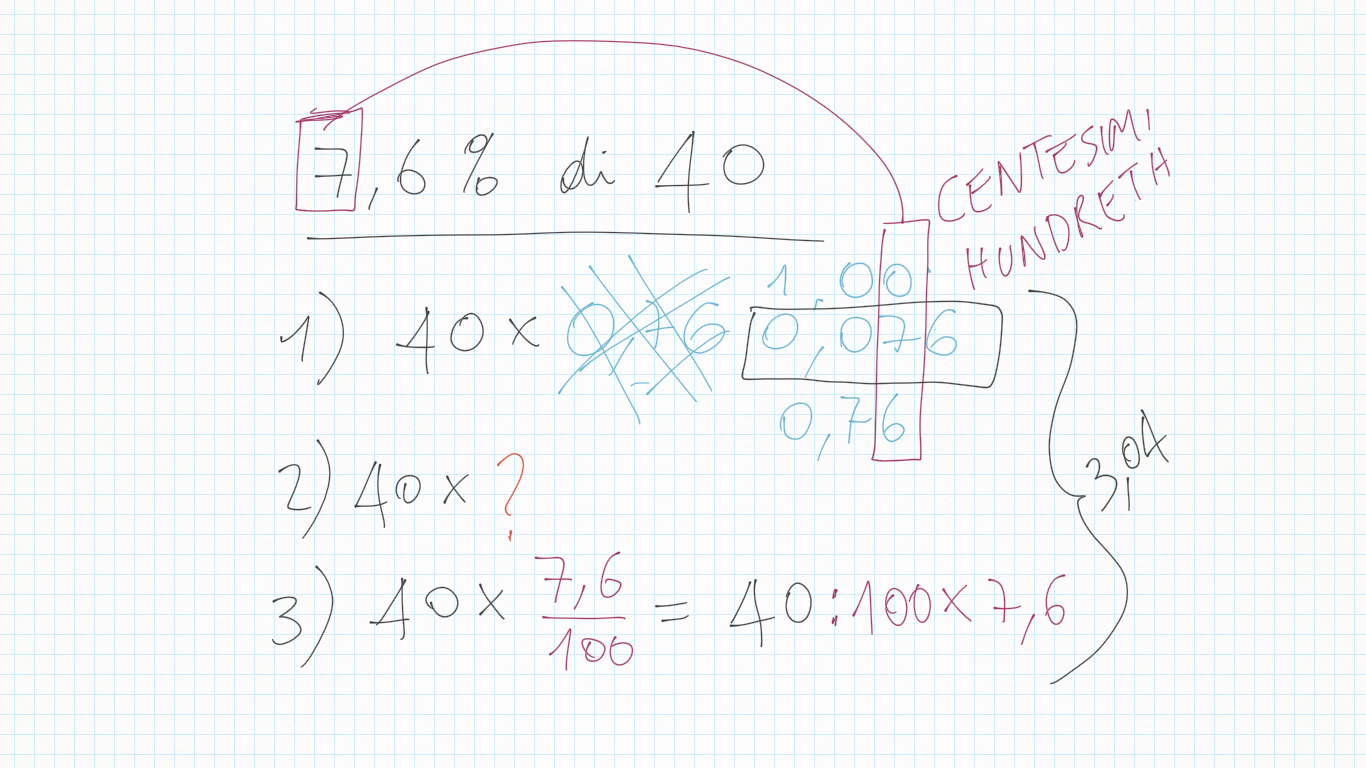 7,6% di 40
CENTESIMI
HUNDRETH
1,00
1) 40 × 0,076
0,76
2) 40 × ?
3) 40 × 7,6/100 = 40 : 100 × 7,6
3,04